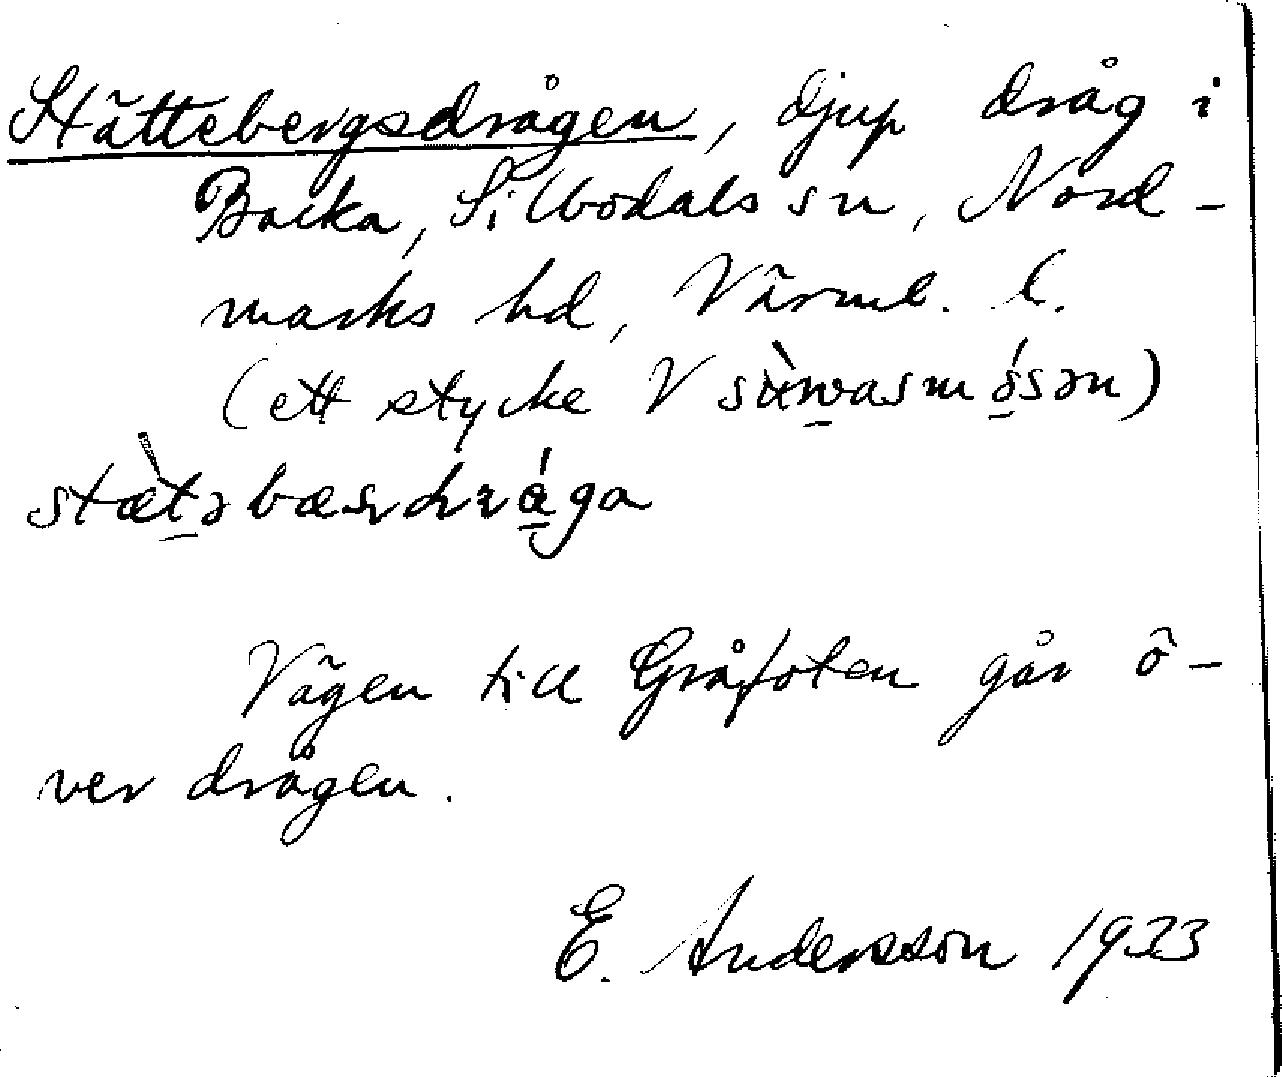 Stättebergsdrågen, djup dråg i
Backa, Silbodals sn, Nord-
marks hd, Värml. l.
(ett stycke V sὰwasmósən)
stæ̀təbæsdrága
Vägen till Gråfoten går ö-
ver drågen.
E. Andersson 1933